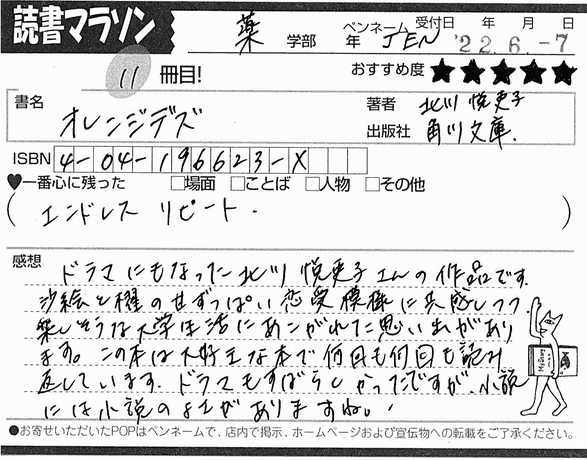 読書マラソン
薬 学部 年 ペンネーム JEN 受付日 年 月 日 '22.6.-7
11 冊目! おすすめ度 ★★★★★
書名 オレンジデズ
著者 北川 悦吏子
出版社 角川文庫.
ISBN 4-04-196623-X
♥一番心に残った □場面 □ことば □人物 □その他
(エンドレス リピート.)
感想
ドラマにもなった北川悦吏子さんの作品です.
沙絵と櫂のせずっぱい恋愛模様に共感しつつ
楽しそうな大学生活にあこがれた思い出があり
ます。この本は大好きな本で何回も何回も読み
返しています.ドラマもすばらしかったですが、小説
には小説のよさがありますね.
●お寄せいただいたPOPはペンネームで、店内で掲示、ホームページおよび宣伝物への転載をご了承ください。